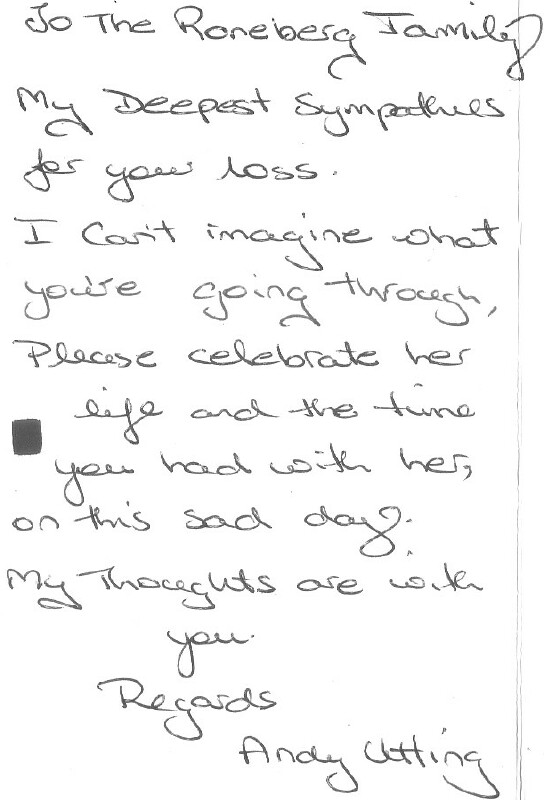 To The Roneberg Family
My Deepest Sympathies
for your loss.
I Can't imagine what
you're going through,
Please celebrate her
life and the time
you had with her,
on this sad day.
My Thoughts are with
you.
Regards
Andy Utting